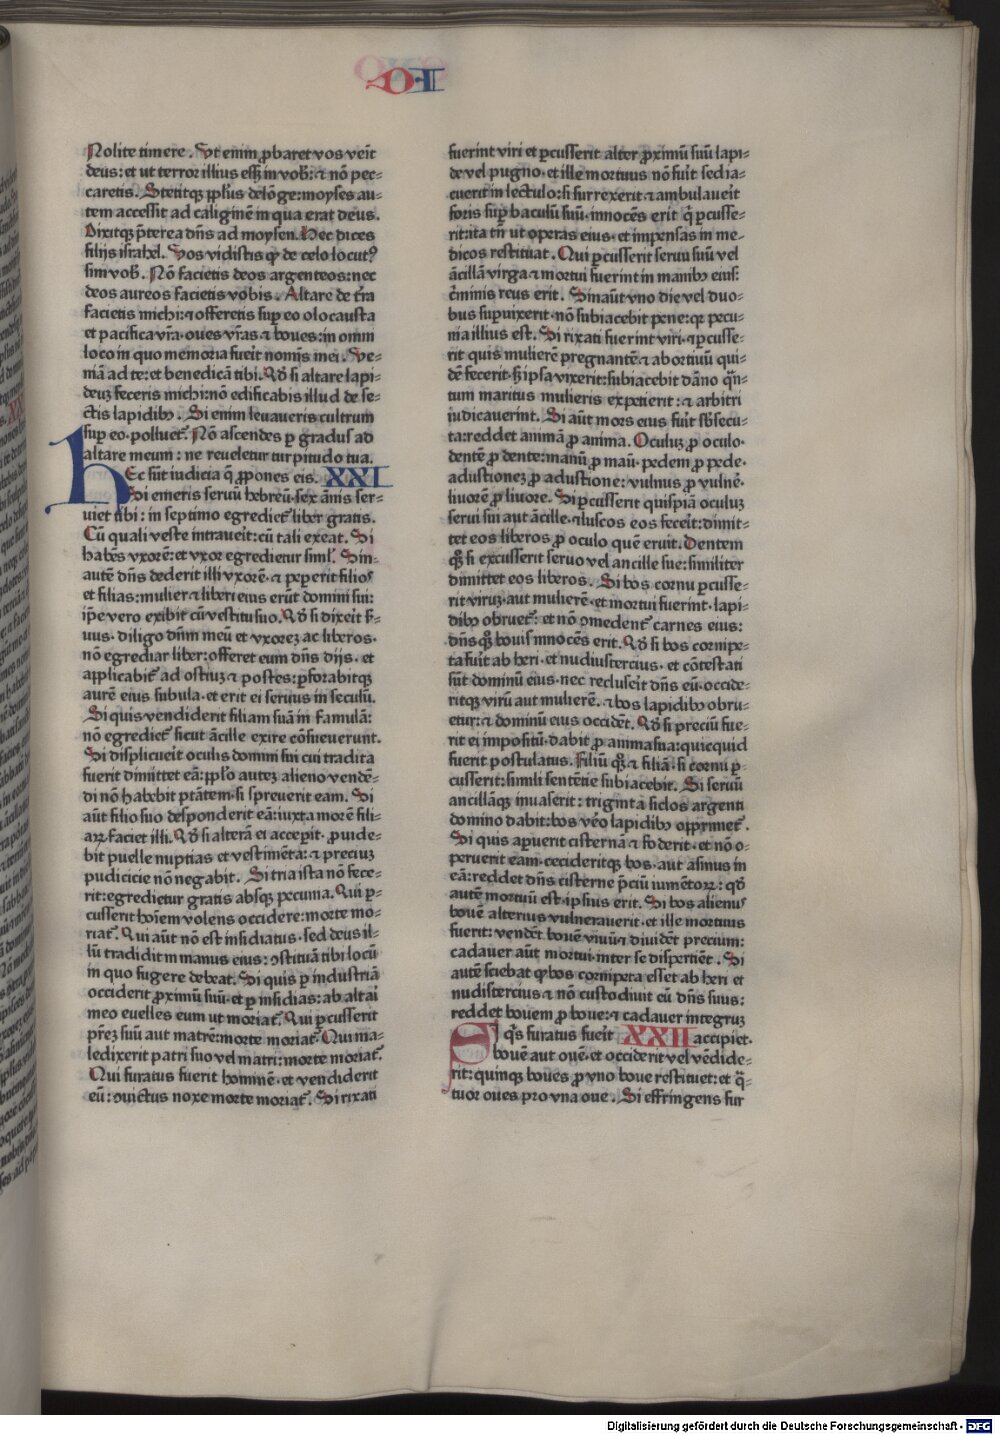 O·I
Nolite timere. Ut enim ꝓbaret vos veīt
deus: et ut terror illius esset in vob̄: ⁊ nō pec⸗
caretis. Stetitqꝫ pp̄lus de lōge: moyses au⸗
tem accessit ad caliginē in qua erat deus.
Dixitqꝫ p̄terea dn̄s ad moysen. Hec dices
filijs israhel. Vos vidistis qꝫ de celo locutꝰ
sim vob̄. Nō facietis deos argenteos: nec
deos aureos facietis vobis. Altare de t̄ra
facietis michi: ⁊ offeretis suꝑ eo olocausta
et pacifica vr̄a· oues vr̄as ⁊ boues: in omni
loco in quo memoria fueīt nomīs mei. Ve⸗
niā ad te: et benedicā tibi. Qd̄ si altare lapi⸗
deuꝫ feceris michi: nō edificabis illud de se⸗
ctis lapidibꝫ. Si enim leuaueris cultrum
suꝑ eo· polluet᷑. Nō ascendes ꝑ graduſ ad
altare meum: ne reueletur turpitudo tua.
Hec sūt iudicia q̄ ꝓpones eis. XXI
Si emeris seruū hebreū· sex ānis ser⸗
uiet tibi: in septimo egrediet᷑ liber gratis.
Cū quali veste intraueīt: cū tali exeat. Si
habēs vxorē: et vxor egredietur siml̄. Sin⸗
autē dn̄s dederit illi vxorē· ⁊ peꝑerit filios
et filias: mulier ⁊ liberi eius erūt domini sui:
ip̄e vero exibit cū vestitu suo. Qd̄ si dixeīt s̄⸗
uus· diligo dn̄m meū et vxoreꝫ ac liberos·
nō egrediar liber: offeret eum dn̄s dijs· et
applicabit᷑ ad ostiuꝫ ⁊ postes: ꝑforabitqꝫ
aurē eius subula· et erit ei seruus in seculū.
Si quis vendiderit filiam suā in famulā:
nō egrediet᷑ sicut ācille exire cōsueuerunt.
Si displicueīt oculis domini sui cui tradita
fuerit dimittet eā: pp̄lo auteꝫ alieno vendē⸗
di nō habebit ptātem· si spreuerit eam. Si
aūt filio suo desponderit eā: iuxta morē fili⸗
aꝝ faciet illi. Qd̄ si alterā ei acceꝑit· ꝓuide⸗
bit puelle nuptias et vestimēta: ⁊ preciuꝫ
pudicicie nō negabit. Si tria ista nō fece⸗
rit: egredietur gratis absqꝫ pecunia. Qui ꝑ⸗
cusserit hoīem volens occidere: morte mo⸗
riat᷑. Qui aūt nō est insidiatus· sed deus il⸗
lū tradidit in manus eius: ꝯstituā tibi locū
in quo fugere debeat. Si quis ꝑ industriā
occiderit ꝓximū suū· et ꝑ insidias: ab altai
meo euelles eum ut moriat᷑. Qui ꝑcusserit
pr̄eꝫ suū aut matrē: morte moriat᷑. Qui ma⸗
ledixerit patri suo vel matri: morte moriat᷑.
Qui furatus fuerit hominē· et vendiderit
eū: ꝯuictus noxe morte moriat᷑. Si rixati
fuerint viri et ꝑcusserit alter ꝓximū suū lapi⸗
de vel pugno· et ille mortuus nō fuīt sed ia⸗
cuerit in lectulo: si surrexerit ⁊ ambulaueīt
foris suꝑ baculū suū· innocēs erit q̄ ꝑcusse⸗
rit: ita tn̄ ut operas eius· et impensas in me⸗
dicos restituat. Qui ꝑcusserit seruū suū vel
ācillā virga ⁊ mortui fuerint in manibꝫ eius:
c̄minis reus erit. Sin aūt vno die vel duo⸗
bus suꝑuixerit· nō subiacebit pene: qꝛ pecu⸗
nia illius est. Si rixati fuerint viri· ⁊ ꝑcusse⸗
rit quis mulierē pregnantē ⁊ abortiuū qui⸗
dē fecerit· sꝫ ipsa vixerit: subiacebit dāno q̄n⸗
tum maritus mulieris expetierit: ⁊ arbitri
iudicauerint. Si aūt mors eius fuīt sb̄secu⸗
ta: reddet animā ꝓ anima. Oculuꝫ ꝓ oculo·
dentē ꝓ dente: manū ꝓ māu· pedem ꝓ pede·
adustioneꝫ ꝓ adustione: vulnus ꝓ vulnē·
liuorē ꝓ liuore. Si ꝑcusserit quispiā oculuꝫ
serui sui aut ācille· ⁊ luscos eos feceīt: dimit⸗
tet eos liberos ꝓ oculo quē eruit. Dentem
qꝫ si excusserit seruo vel ancille sue: similiter
dimittet eos liberos. Si bos cornu ꝑcusse⸗
rit viruꝫ· aut mulierē· et mortui fuerint· lapi⸗
dibꝫ obruet᷑: et nō ꝯmedent᷑ carnes eius:
dn̄s qꝫ bouis innocēs erit. Qd̄ si bos cornipe⸗
ta fuīt ab heri· et nudiustercius· et cōtestati
sūt dominū eius· nec reclusēit dn̄s eū· occide⸗
ritqꝫ virū aut mulierē. ⁊ bos lapidibꝫ obru⸗
etur: ⁊ dominū eius occidēt. Qd̄ si preciū fue⸗
rit ei impositū· dabit ꝓ anima sua: quicquid
fuerit postulatus. Filiū qꝫ ⁊ filiā· si cornu ꝑ⸗
cusserit: simili sentētie subiacebit. Si seruū
ancillāqꝫ inuaserit: triginta siclos argenti
domino dabit: bos v̄o lapidibꝫ opprimet᷑.
Si quis aperuerit cisternā ⁊ foderit· et nō o⸗
peruerit eam· cecideritqꝫ bos· aut asinus in
eā: reddet dn̄s cisterne p̄ciū iumētoꝝ: qd̄
autē mortuū est· ipsius erit. Si bos alienus
bouē alterius vulnerauerit· et ille mortuus
fuerit: vendēt bouē viuū ⁊ diuidēt precium:
cadauer aūt mortui· inter se disꝑtiēt. Si
autē sciebat qꝫ bos cornipeta esset ab heri et
nudistercius ⁊ nō custodiuit eū dn̄s suus:
reddet bouem ꝓ boue: ⁊ cadauer integruꝫ
Si q̄s furatus fueīt XXII accipiet.
bouē aut ouē· et occiderit vel vēdide⸗
rit: quinqꝫ boues ꝓ vno boue restituet: et q̄⸗
tuor oues pro vna oue. Si effringens fur
Digitalisierung gefördert durch die Deutsche Forschungsgemeinschaft - DFG